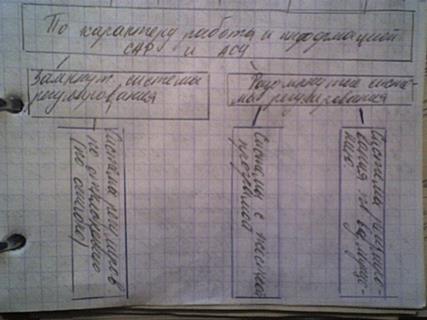 По характеру работы и информацией
САР и АСУ
Замкнут. системы
регулирования
Разомкнутые систе-
мы регулирования
Система регулиров
по отклонению
(по ошибке)
Системы с жесткой
Система регули-